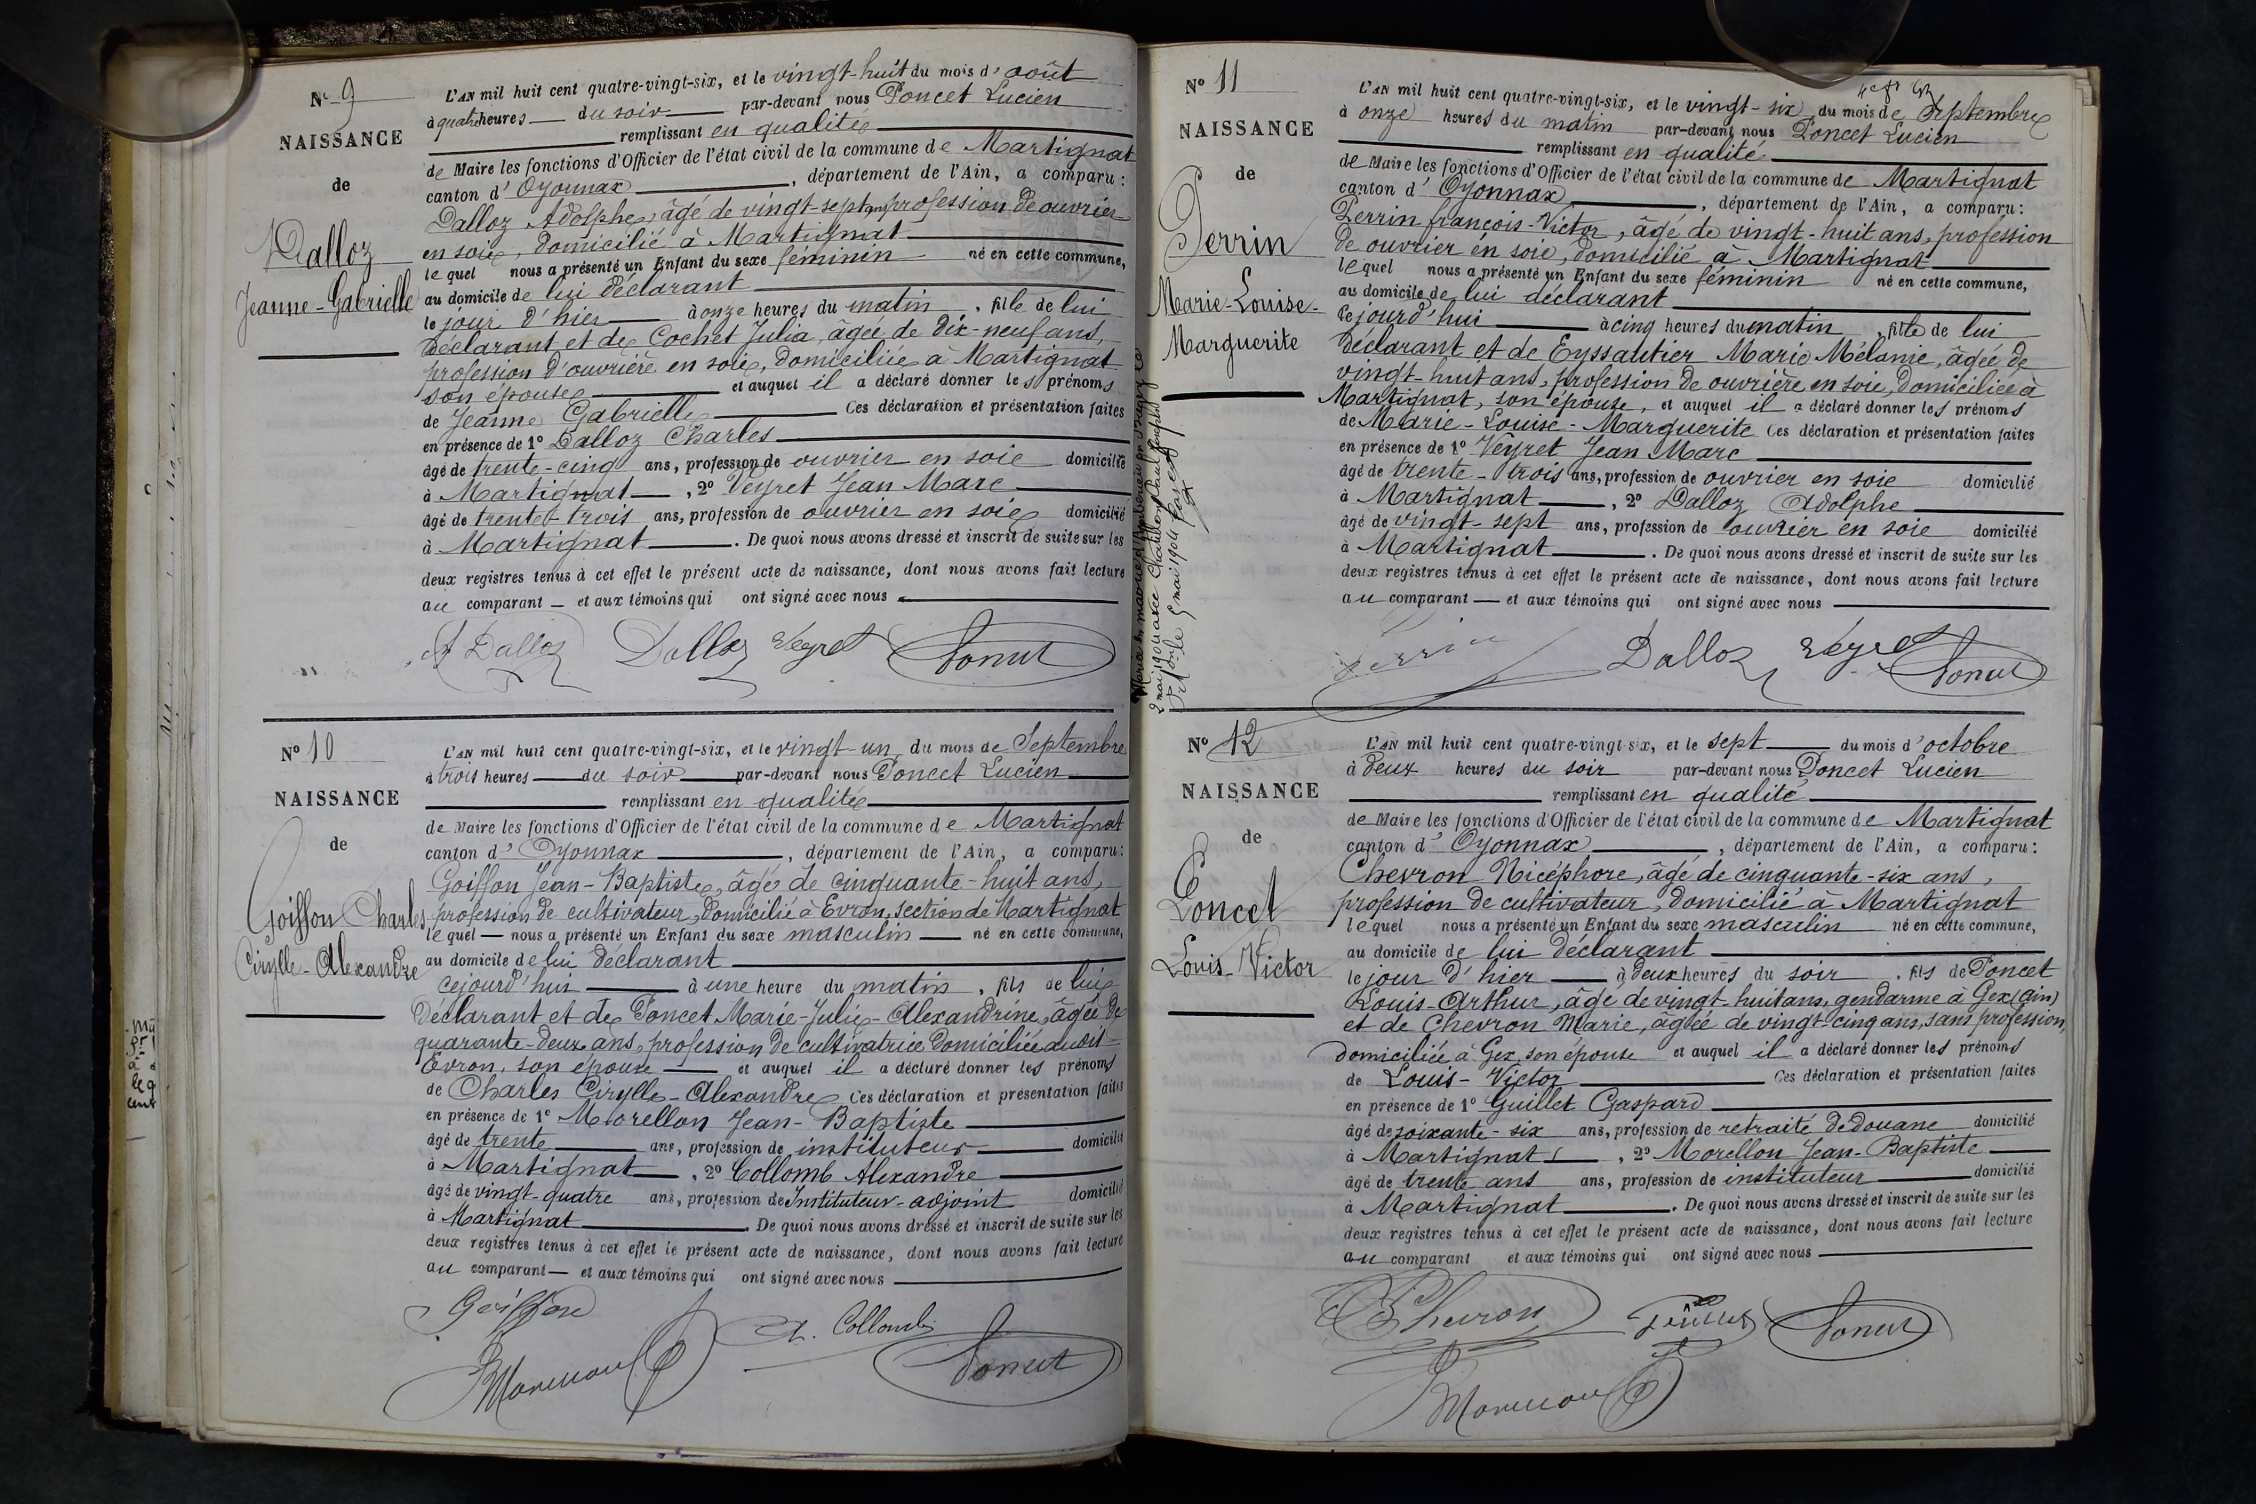 N° 9
NAISSANCE
de
Dalloz
Jeanne-Gabrielle
L'AN mil huit cent quatre-vingt-six, et le vingt-huit du mois d'août
à quatre heures du soir par-devant nous Poncet Lucien
remplissant en qualité
de Maire les fonctions d'Officier de l'état civil de la commune de Martignat
canton d'Oyonnax, département de l'Ain, a comparu :
Dalloz Adolphe, âgé de vingt-sept ans profession de ouvrier
en soie, domicilié à Martignat
le quel nous a présenté un Enfant du sexe féminin né en cette commune,
au domicile de lui déclarant
le jour d'hier à onze heures du matin, fille de lui
déclarant et de Cochet Julia, âgée de dix-neuf ans,
profession d'ouvrière en soie, domiciliée à Martignat
son épouse et auquel il a déclaré donner les prénoms
de Jeanne Gabrielle Ces déclaration et présentation faites
en présence de 1° Dalloz Charles
âgé de trente-cinq ans, profession de ouvrier en soie domicilié
à Martignat, 2° Veyret Jean Marc
âgé de trente-trois ans, profession de ouvrier en soie domicilié
à Martignat. De quoi nous avons dressé et inscrit de suite sur les
deux registres tenus à cet effet le présent acte de naissance, dont nous avons fait lecture
au comparant et aux témoins qui ont signé avec nous
A Dalloz Dalloz Veyret Poncet
N° 10
NAISSANCE
de
Goiffon Charles
Cirylle-Alexandre
L'AN mil huit cent quatre-vingt-six, et le vingt-un du mois de Septembre
à trois heures du soir par-devant nous Poncet Lucien
remplissant en qualité
de Maire les fonctions d'Officier de l'état civil de la commune de Martignat
canton d'Oyonnax, département de l'Ain, a comparu :
Goiffon Jean-Baptiste, âgé de cinquante-huit ans,
profession de cultivateur, domicilié à Evron, section de Martignat
le quel nous a présenté un Enfant du sexe masculin né en cette commune,
au domicile de lui déclarant
cejourd'hui à une heure du matin, fils de lui
déclarant et de Poncet Marie-Julie-Alexandrine, âgée de
quarante-deux ans, profession de cultivatrice domiciliée audit
Evron, son épouse et auquel il a déclaré donner les prénoms
de Charles Cirylle-Alexandre Ces déclaration et présentation faites
en présence de 1° Morellon Jean-Baptiste
âgé de trente ans, profession de instituteur domicilié
à Martignat, 2° Collomb Alexandre
âgé de vingt-quatre ans, profession de Instituteur-adjoint domicilié
à Martignat. De quoi nous avons dressé et inscrit de suite sur les
deux registres tenus à cet effet le présent acte de naissance, dont nous avons fait lecture
au comparant et aux témoins qui ont signé avec nous
Goiffon A. Collomb
JBMorellon Poncet
N° 11
NAISSANCE
de
Perrin
Marie-Louise-
Marguerite
L'AN mil huit cent quatre-vingt-six, et le vingt-six du mois de Septembre
à onze heures du matin par-devant nous Poncet Lucien
remplissant en qualité
de Maire les fonctions d'Officier de l'état civil de la commune de Martignat
canton d'Oyonnax, département de l'Ain, a comparu :
Perrin françois-Victor, âgé de vingt-huit ans, profession
de ouvrier en soie, domicilié à Martignat
le quel nous a présenté un Enfant du sexe féminin né en cette commune,
au domicile de lui déclarant
cejourd'hui à cinq heures du matin, fille de lui
déclarant et de Eyssautier Marie Mélanie, âgée de
vingt-huit ans, profession de ouvrière en soie, domiciliée à
Martignat, son épouse, et auquel il a déclaré donner les prénoms
de Marie-Louise-Marguerite Ces déclaration et présentation faites
en présence de 1° Veyret Jean Marc
âgé de trente-trois ans, profession de ouvrier en soie domicilié
à Martignat, 2° Dalloz Adolphe
âgé de vingt-sept ans, profession de ouvrier en soie domicilié
à Martignat. De quoi nous avons dressé et inscrit de suite sur les
deux registres tenus à cet effet le présent acte de naissance, dont nous avons fait lecture
au comparant et aux témoins qui ont signé avec nous
Perrin Dalloz Veyret Poncet
N° 12
NAISSANCE
de
Poncet
Louis-Victor
L'AN mil huit cent quatre-vingt-six, et le sept du mois d'octobre
à deux heures du soir par-devant nous Poncet Lucien
remplissant en qualité
de Maire les fonctions d'Officier de l'état civil de la commune de Martignat
canton d'Oyonnax, département de l'Ain, a comparu :
Chevron Nicéphore, âgé de cinquante-six ans,
profession de cultivateur, domicilié à Martignat
le quel nous a présenté un Enfant du sexe masculin né en cette commune,
au domicile de lui déclarant
le jour d'hier à deux heures du soir, fils de Poncet
Louis-Arthur, âgé de vingt-huit ans, gendarme à Gex (Ain)
et de Chevron Marie, âgée de vingt-cinq ans, sans profession,
domiciliée à Gex, son épouse et auquel il a déclaré donner les prénoms
de Louis-Victor Ces déclaration et présentation faites
en présence de 1° Guillet Gaspard
âgé de soixante-six ans, profession de retraité de douane domicilié
à Martignat, 2° Morellon Jean-Baptiste
âgé de trente ans ans, profession de instituteur domicilié
à Martignat. De quoi nous avons dressé et inscrit de suite sur les
deux registres tenus à cet effet le présent acte de naissance, dont nous avons fait lecture
au comparant et aux témoins qui ont signé avec nous
Chevron Poncet
JBMorellon